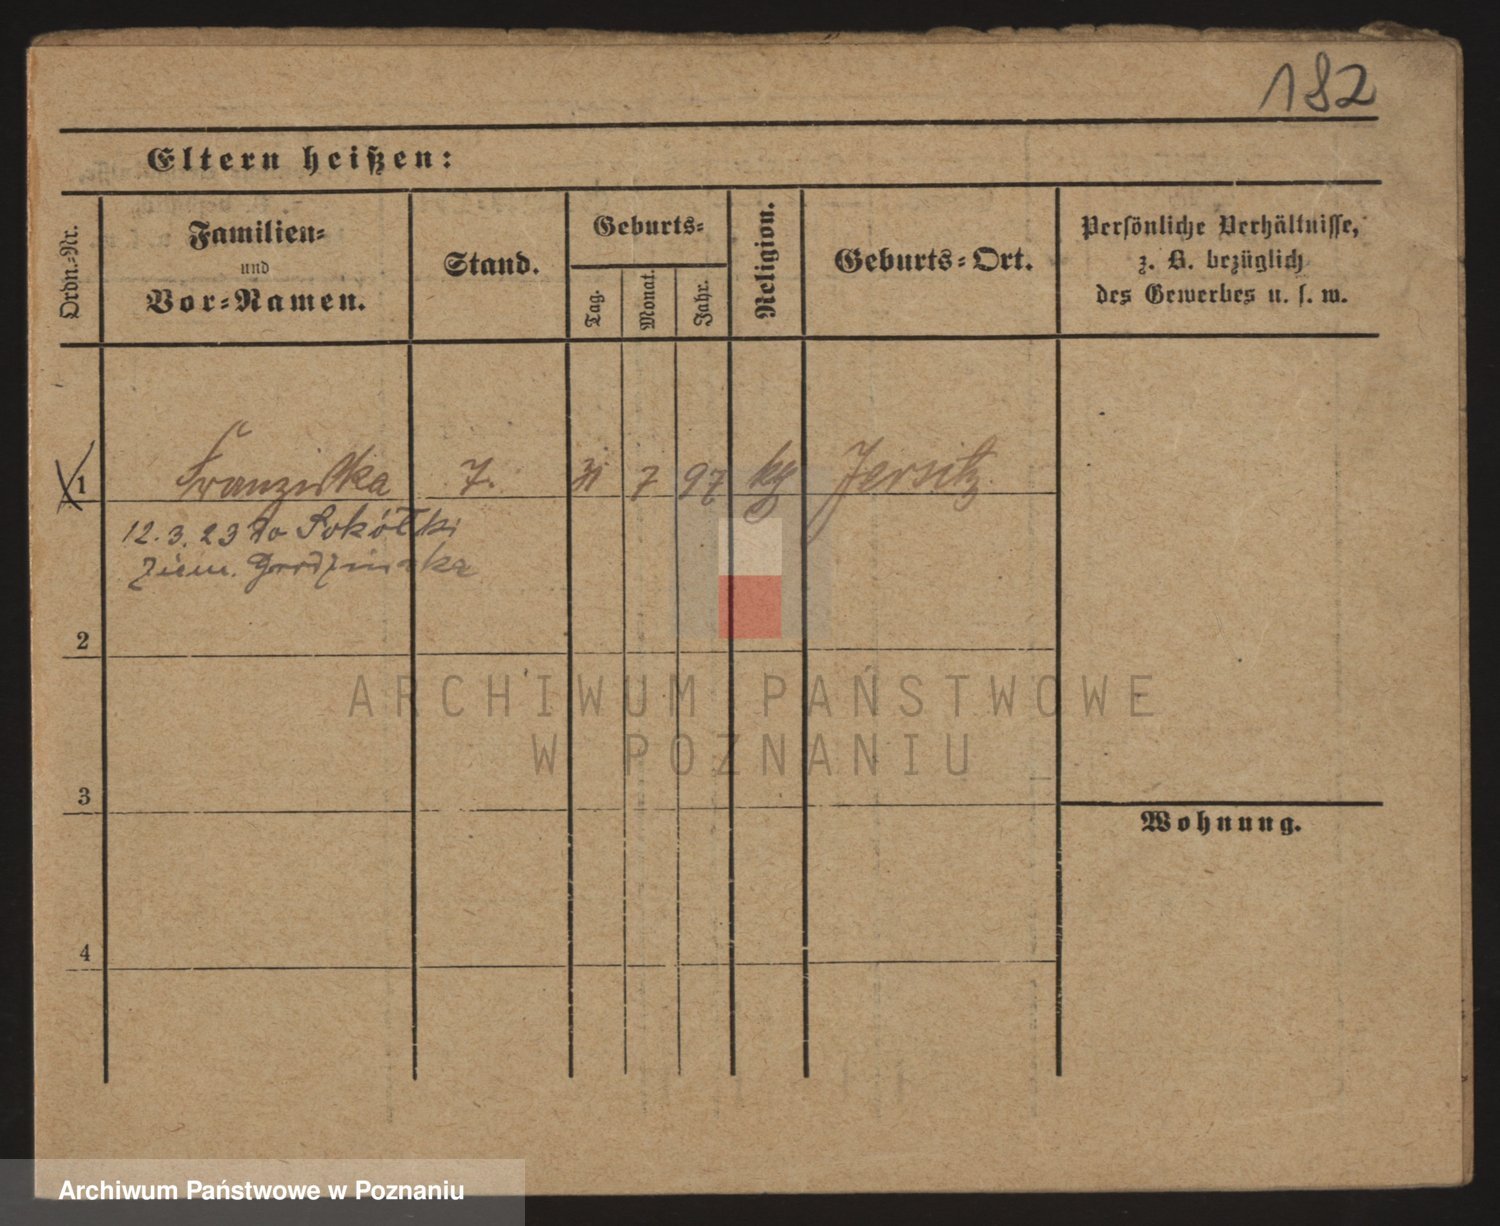 182
Eltern heißen:
Ordn.-Nr.
Familien-
und
Vor-Namen.
Stand.
Geburts-
Tag.
Monat.
Jahr.
Religion.
Geburts-Ort.
Persönliche Verhältnisse,
z. B. bezüglich
des Gewerbes u. s. w.
1 Franziska 7. 31 7 97 kg Jersitz
12.3.23 do Sokółki
ziem. Grodzieńska
2
ARCHIWUM PAŃSTWOWE
W POZNANIU
3
Wohnung.
4
Archiwum Państwowe w Poznaniu